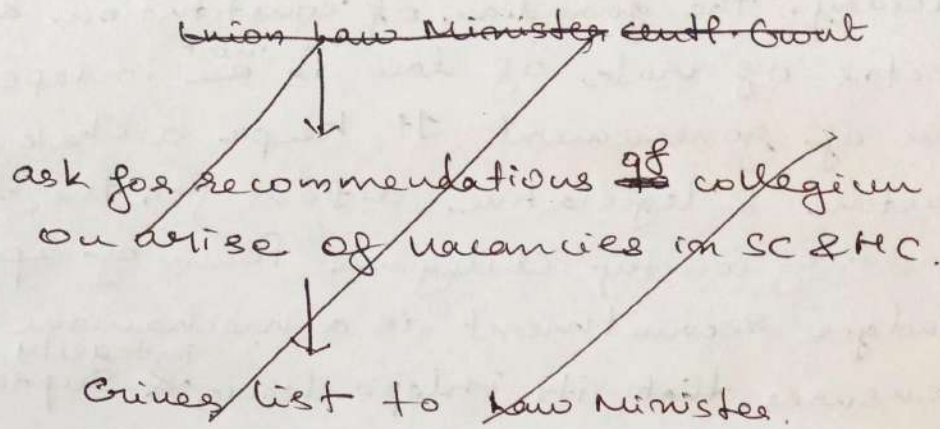 Union Law Minister centl. Govt
ask for recommendations of collegium
on arise of vacancies in SC & HC.
Gives list to Law Minister.